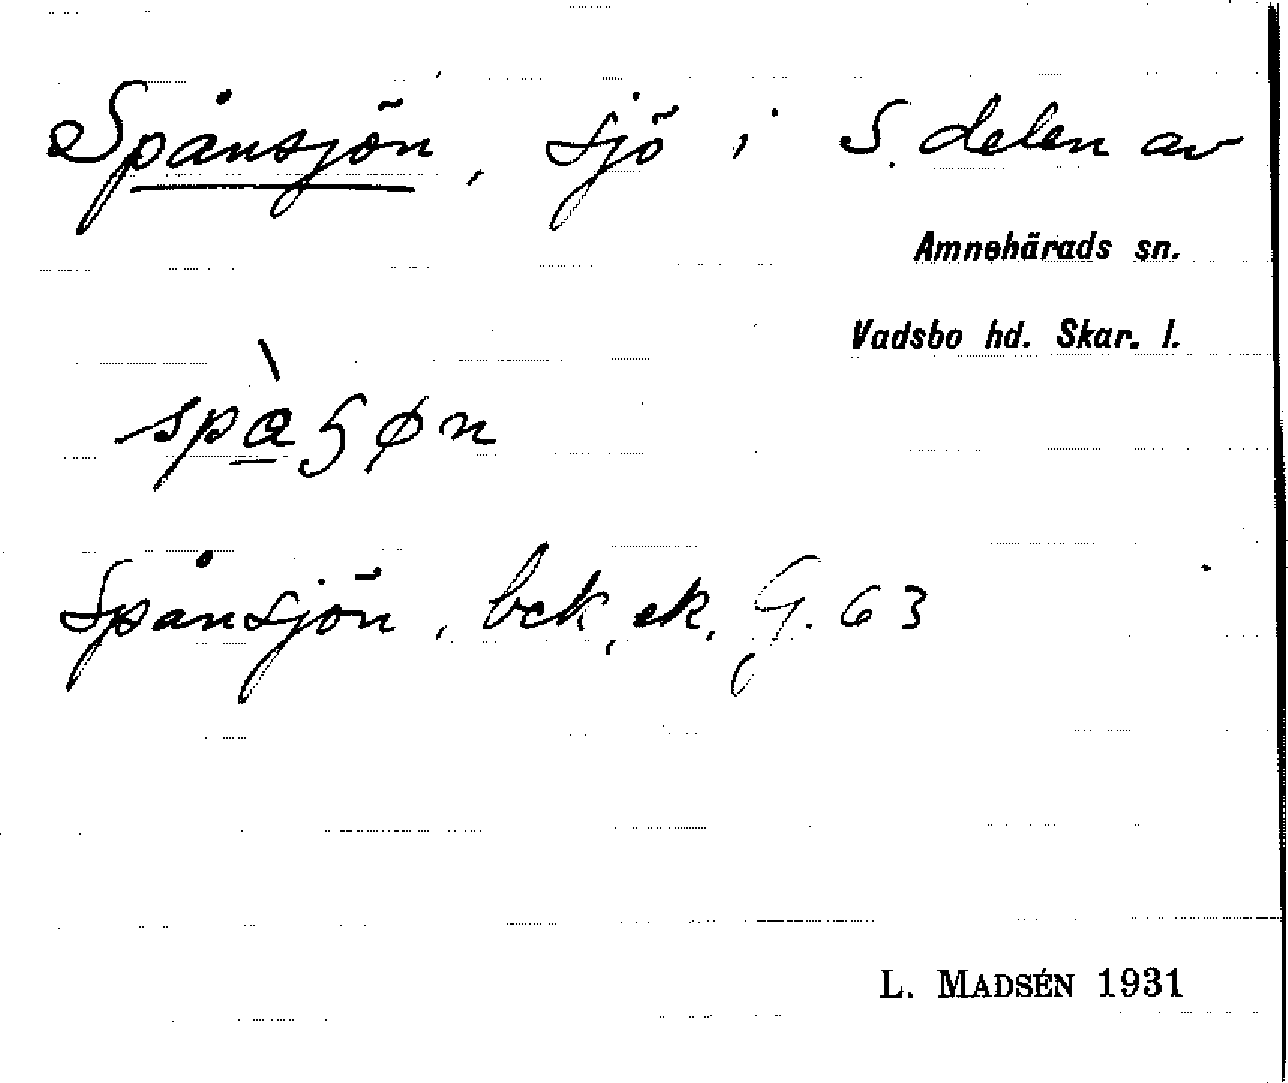 Spånsjön, sjö i S. delen av
Amnehärads sn.
Vadsbo hd. Skar. l.
Spånsjön, bck, ek, G. 63
L. MADSÉN 1931